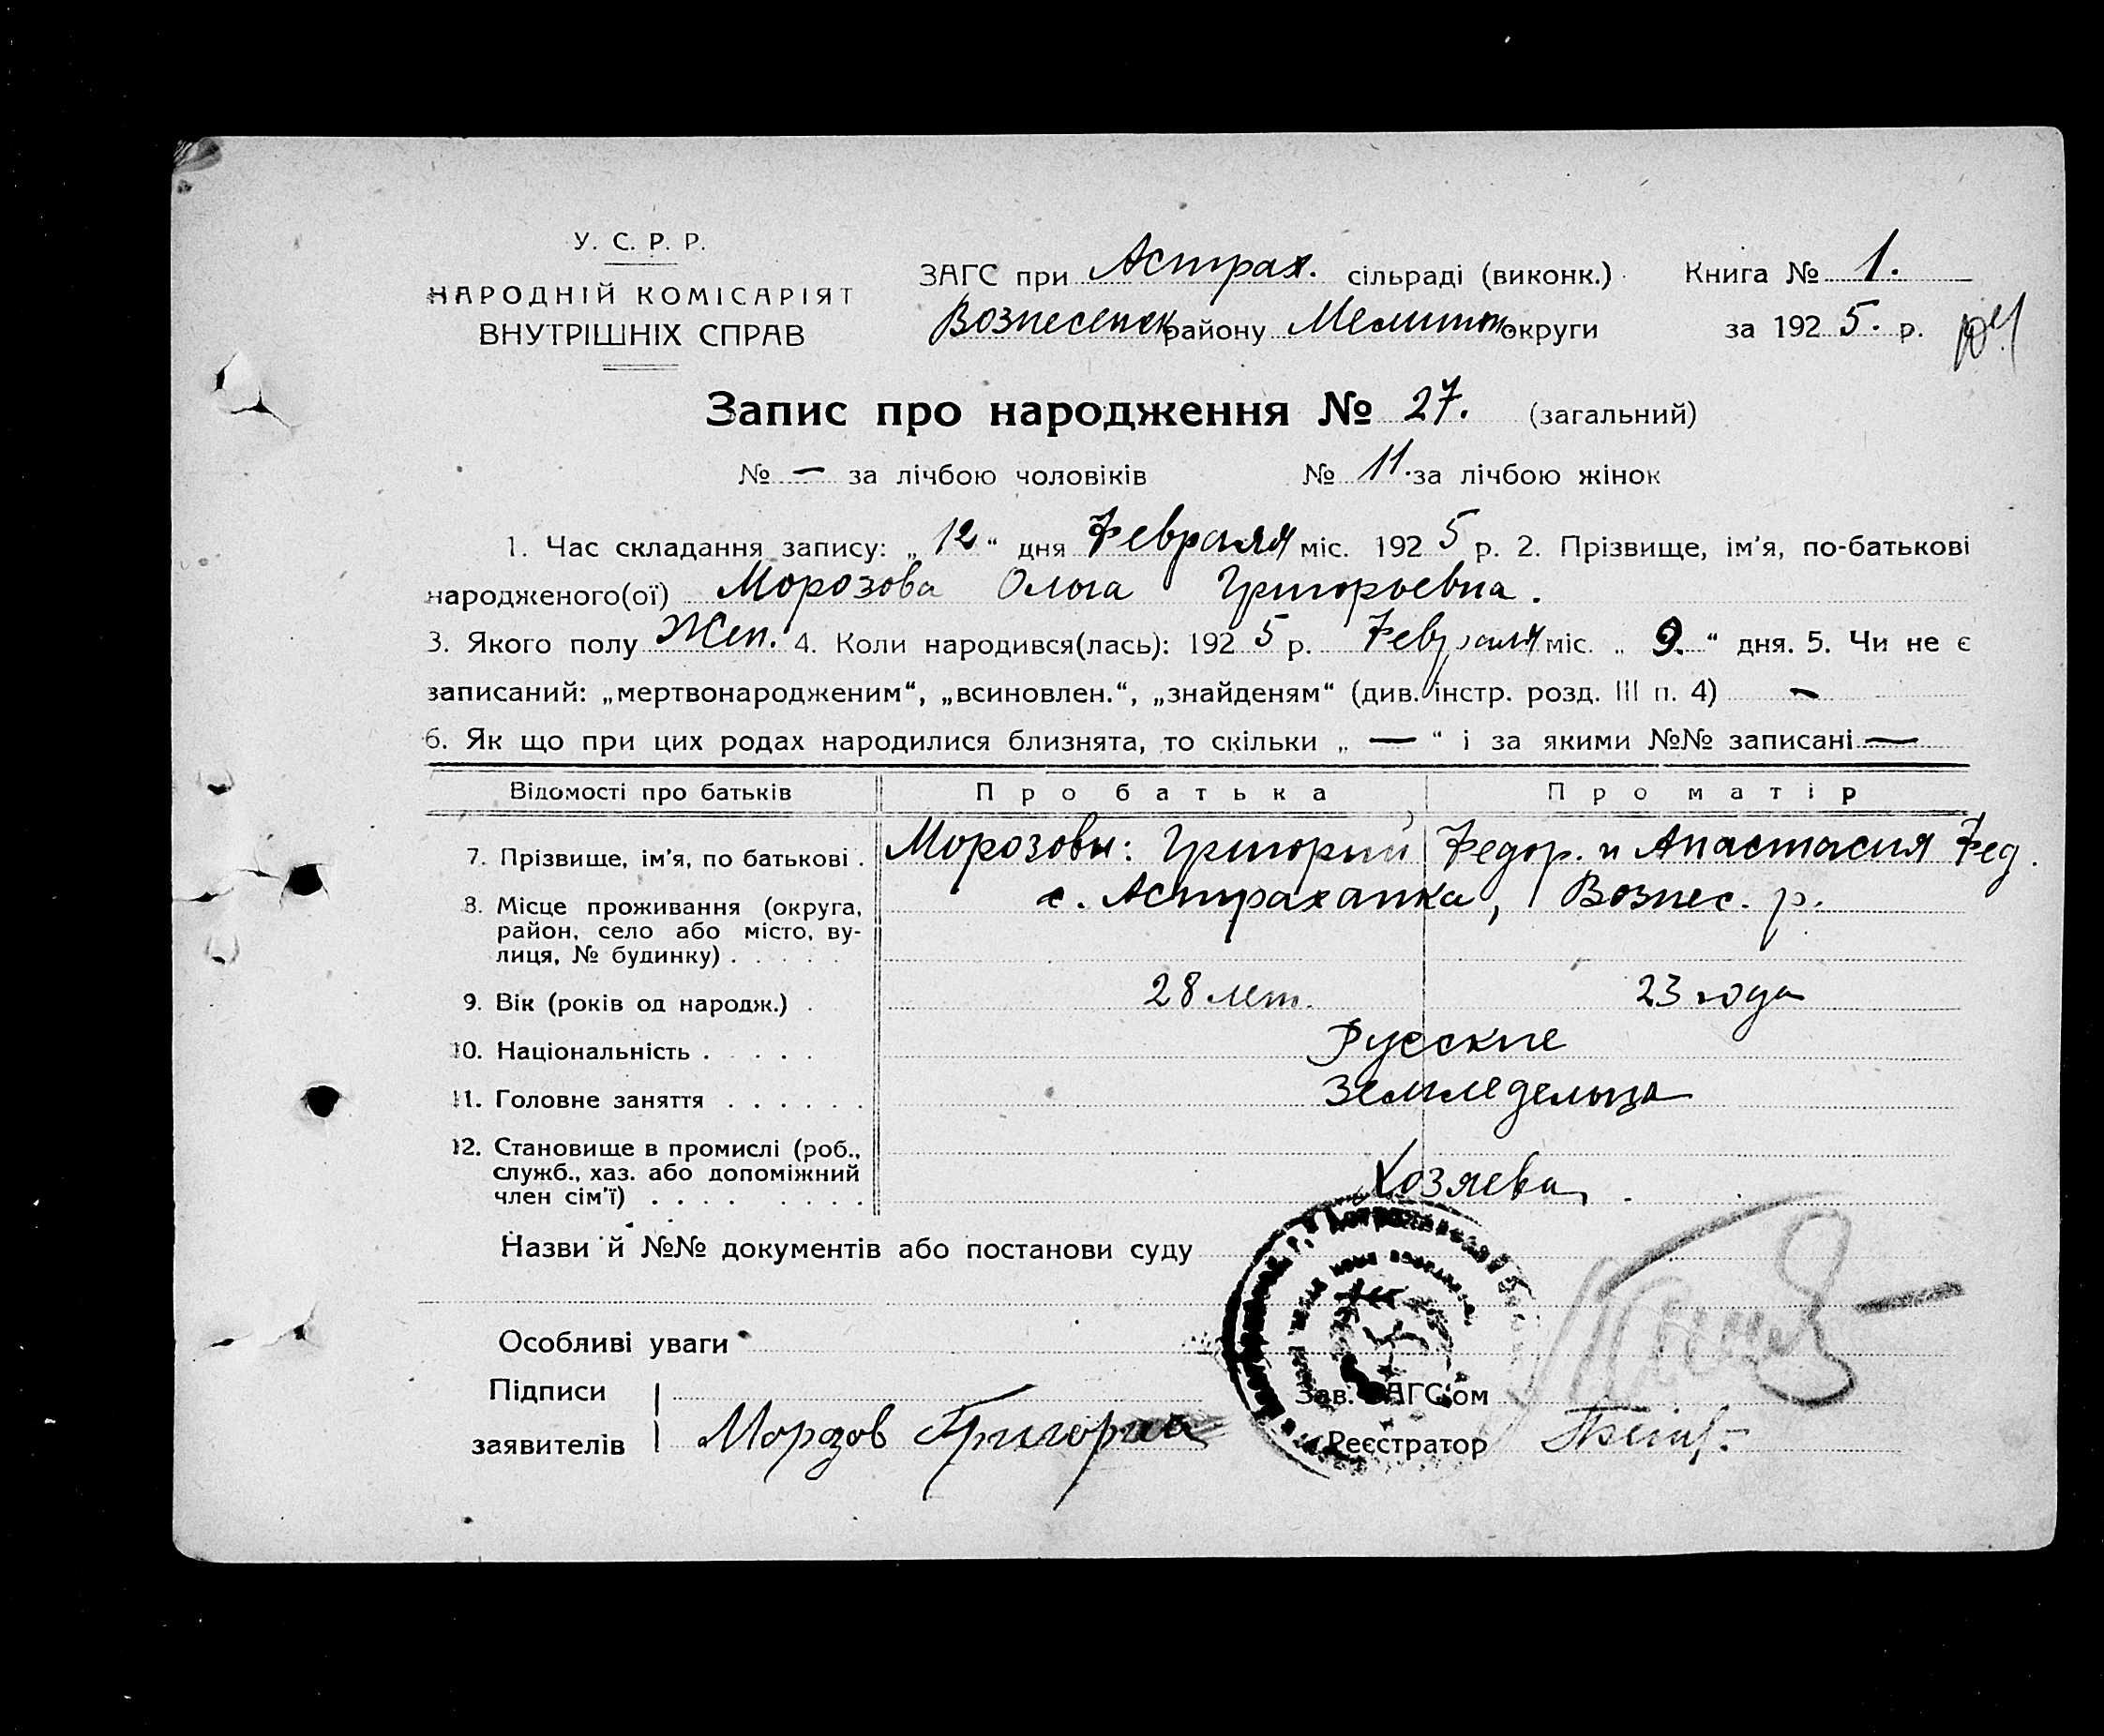 У. С. Р. Р.
НАРОДНІЙ КОМІСАРІЯТ
ВНУТРІШНІХ СПРАВ
ЗАГС при Астрах. сільраді (виконк.)
Вознесенск району Мелитоп округи
Книга № 1.
за 1925. р.
Запис про народження № 27. (загальний)
№ — за лічбою чоловіків № 11. за лічбою жінок
1. Час складання запису: „12“ дня Февраля міс. 1925 р. 2. Прізвище, ім'я, по-батькові
народженого(ої) Морозова Ольга Григорьевна.
3. Якого полу Жен. 4. Коли народився(лась): 1925 р. Февраля міс. „9.“ дня. 5. Чи не є
записаний: „мертвонародженим“, „всиновлен.“, „знайденям“ (див. інстр. розд. III п. 4) —
6. Як що при цих родах народилися близнята, то скільки „—“ і за якими №№ записані —
Відомості про батьків Про батька Про матір
7. Прізвище, ім'я, по батькові . Морозовы: Григорий Федор. и Анастасия Фед.
8. Місце проживання (округа, с. Астраханка, Вознес. р.
район, село або місто, ву-
лиця, № будинку) . . . . .
9. Вік (років од народж.) . 28 лет. 23 года
10. Національність . . . . . Русские
11. Головне заняття . . . . . . Земледельца
12. Становище в промислі (роб.,
служб., хаз. або допоміжний
член сім'ї) . . . . . . . . Хозяева.
Назви й №№ документів або постанови суду
Особливі уваги
Підписи
заявителів Морозов Григорий
Зав. ЗАГС'ом
Реєстратор